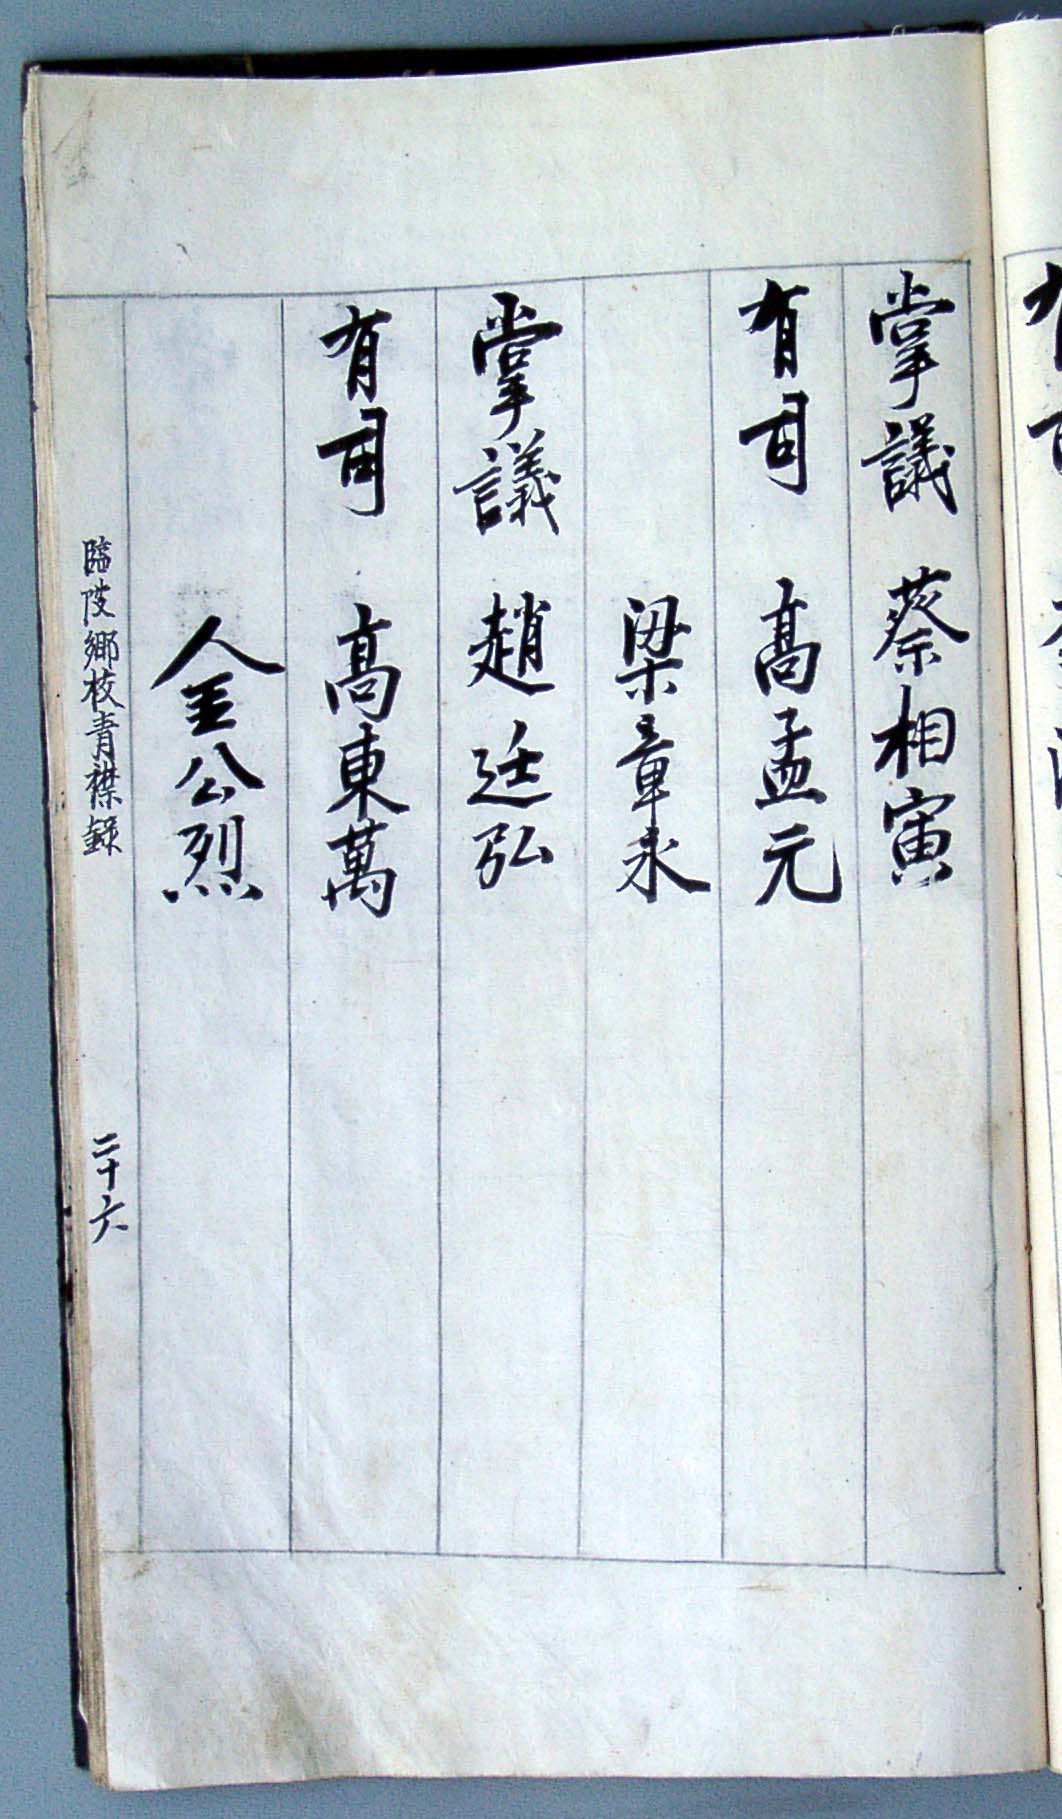 掌議 蔡相寅
有司 高孟元
梁章永
掌議 趙廷弘
有司 高東萬
金公烈
臨陂鄉校青襟錄
二十六